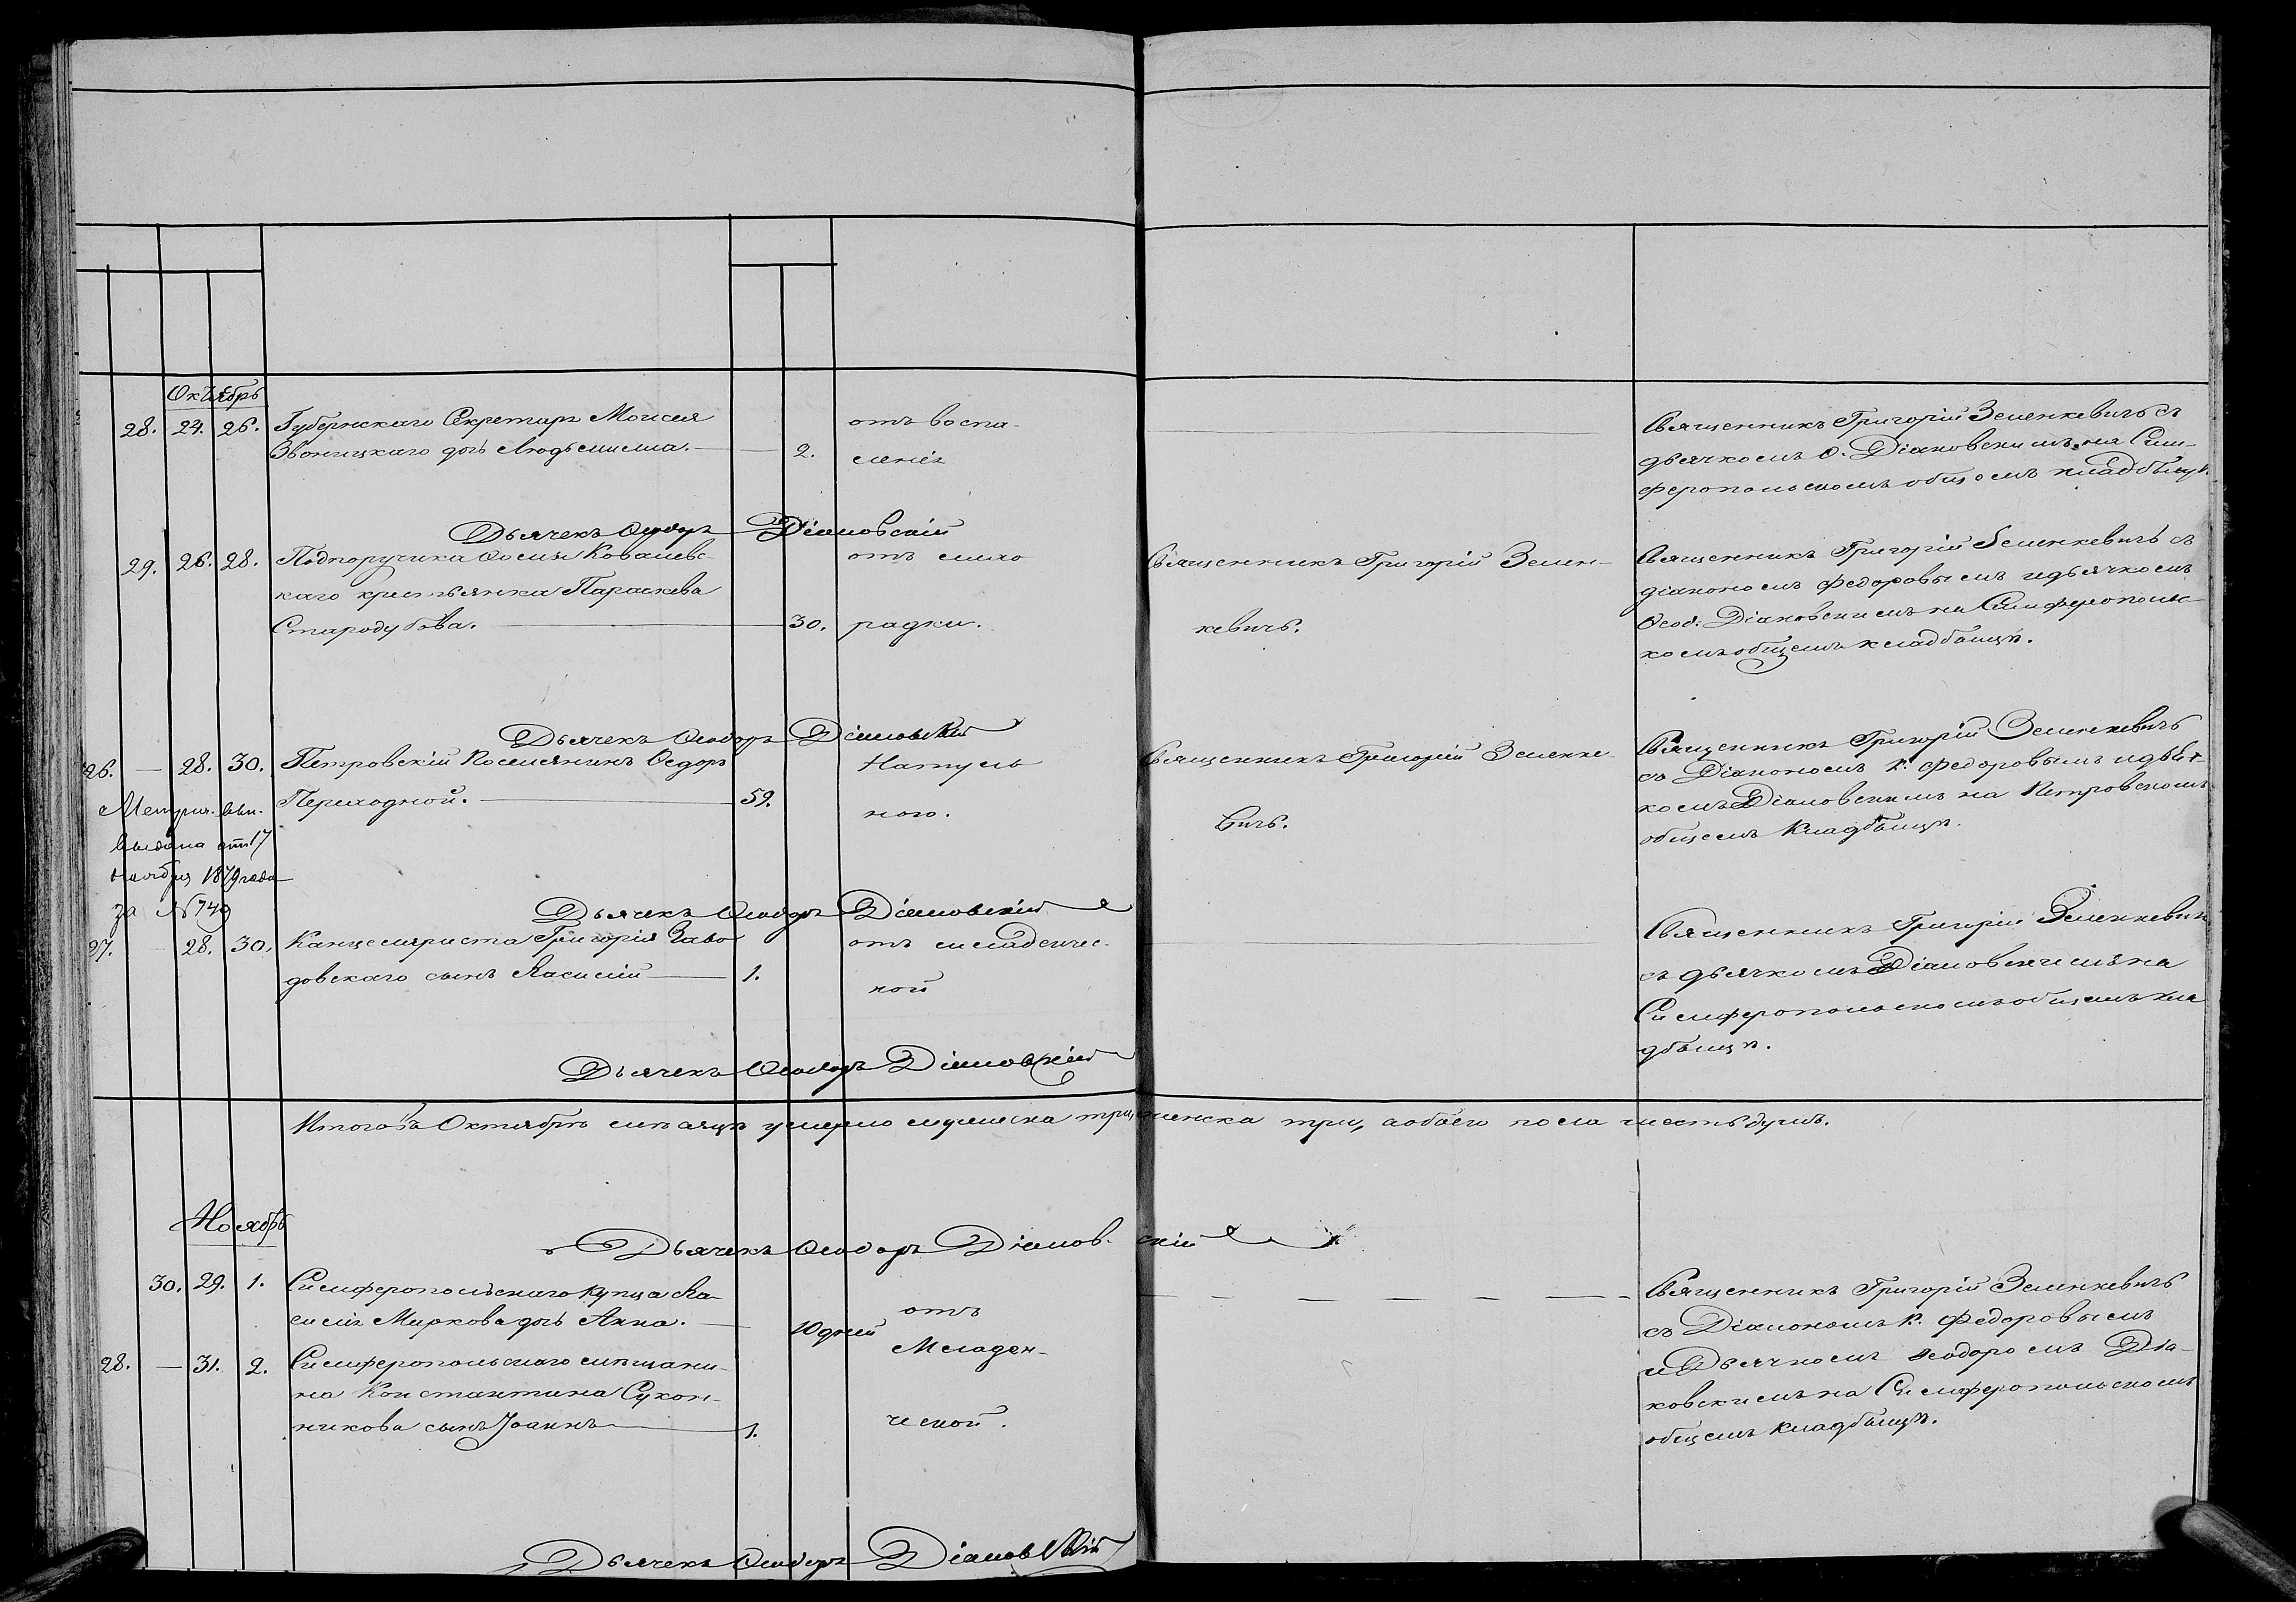 Октябрь
28. 24. 26. Губернскаго Секретаря Моисея
Звоницкаго дочь Людьмилла. — 2.
отъ воспа-
ленія
Священникъ Григорій Зеленкевичъ съ
дьячкомъ Ѳ. Діаковскимъ, на Сим-
феропольскомъ общемъ кладбищѣ.
Дьячекъ Ѳеодоръ Діаковскій
29. 26. 28. Подпоручика Ковалевс-
каго крестьянка Параскева
Стародубова. — 30.
отъ лихо
радки.
Священникъ Григорій Зелен-
кевичъ.
Священникъ Григорій Зеленкевичъ съ
діакономъ Федоровымъ и дьячкомъ
Ѳеод: Діаковскимъ на Симферопольс-
комъ общемъ кладбищѣ.
Дьячекъ Ѳеодоръ Діаковскій
26. — 28. 30. Петровскій Поселянинъ Ѳедоръ
Переходной. — 59.
Натураль
ного.
Священникъ Григорій Зеленке-
вичъ.
Священникъ Григорій Зеленкевичъ
съ Діакономъ К. Федоровымъ и дьяч
комъ Діаковскимъ на Петровскомъ
общемъ кладбищѣ.
Метрич. вып.
выдана отъ 17
Ноября 1879 года
за № 749
Дьячекъ Ѳеодоръ Діаковскій
27. — 28. 30. Канцеляриста Григорія Заво
довскаго сынъ Василій — 1.
отъ младенчес-
кой
Священникъ Григорій Зеленкевичъ
съ дьячкомъ Діаковскимъ на
Симферопольскомъ общемъ кла
дбищѣ.
Дьячекъ Ѳеодоръ Діаковскій
Итого въ Октябрѣ мѣсяцѣ умерло мужеска три, женска три, а обоего пола шесть душъ.
Ноябрь
Дьячекъ Ѳеодоръ Діаковскій
30. 29. 1. Симферопольскаго купца Ва-
силія Маркова дочь Анна. — 10 дней
отъ
Младен-
ческой.
28. — 31. 2. Симферопольскаго мѣщани-
на Константина Сукон-
никова сынъ Іоаннъ — 1.
Священникъ Григорій Зеленкевичъ
съ Діакономъ К. Федоровымъ
и Дьячкомъ Ѳеодоромъ Діа-
ковскимъ на Симферопольскомъ
общемъ кладбищѣ.
Дьячекъ Ѳеодоръ Діаковскій